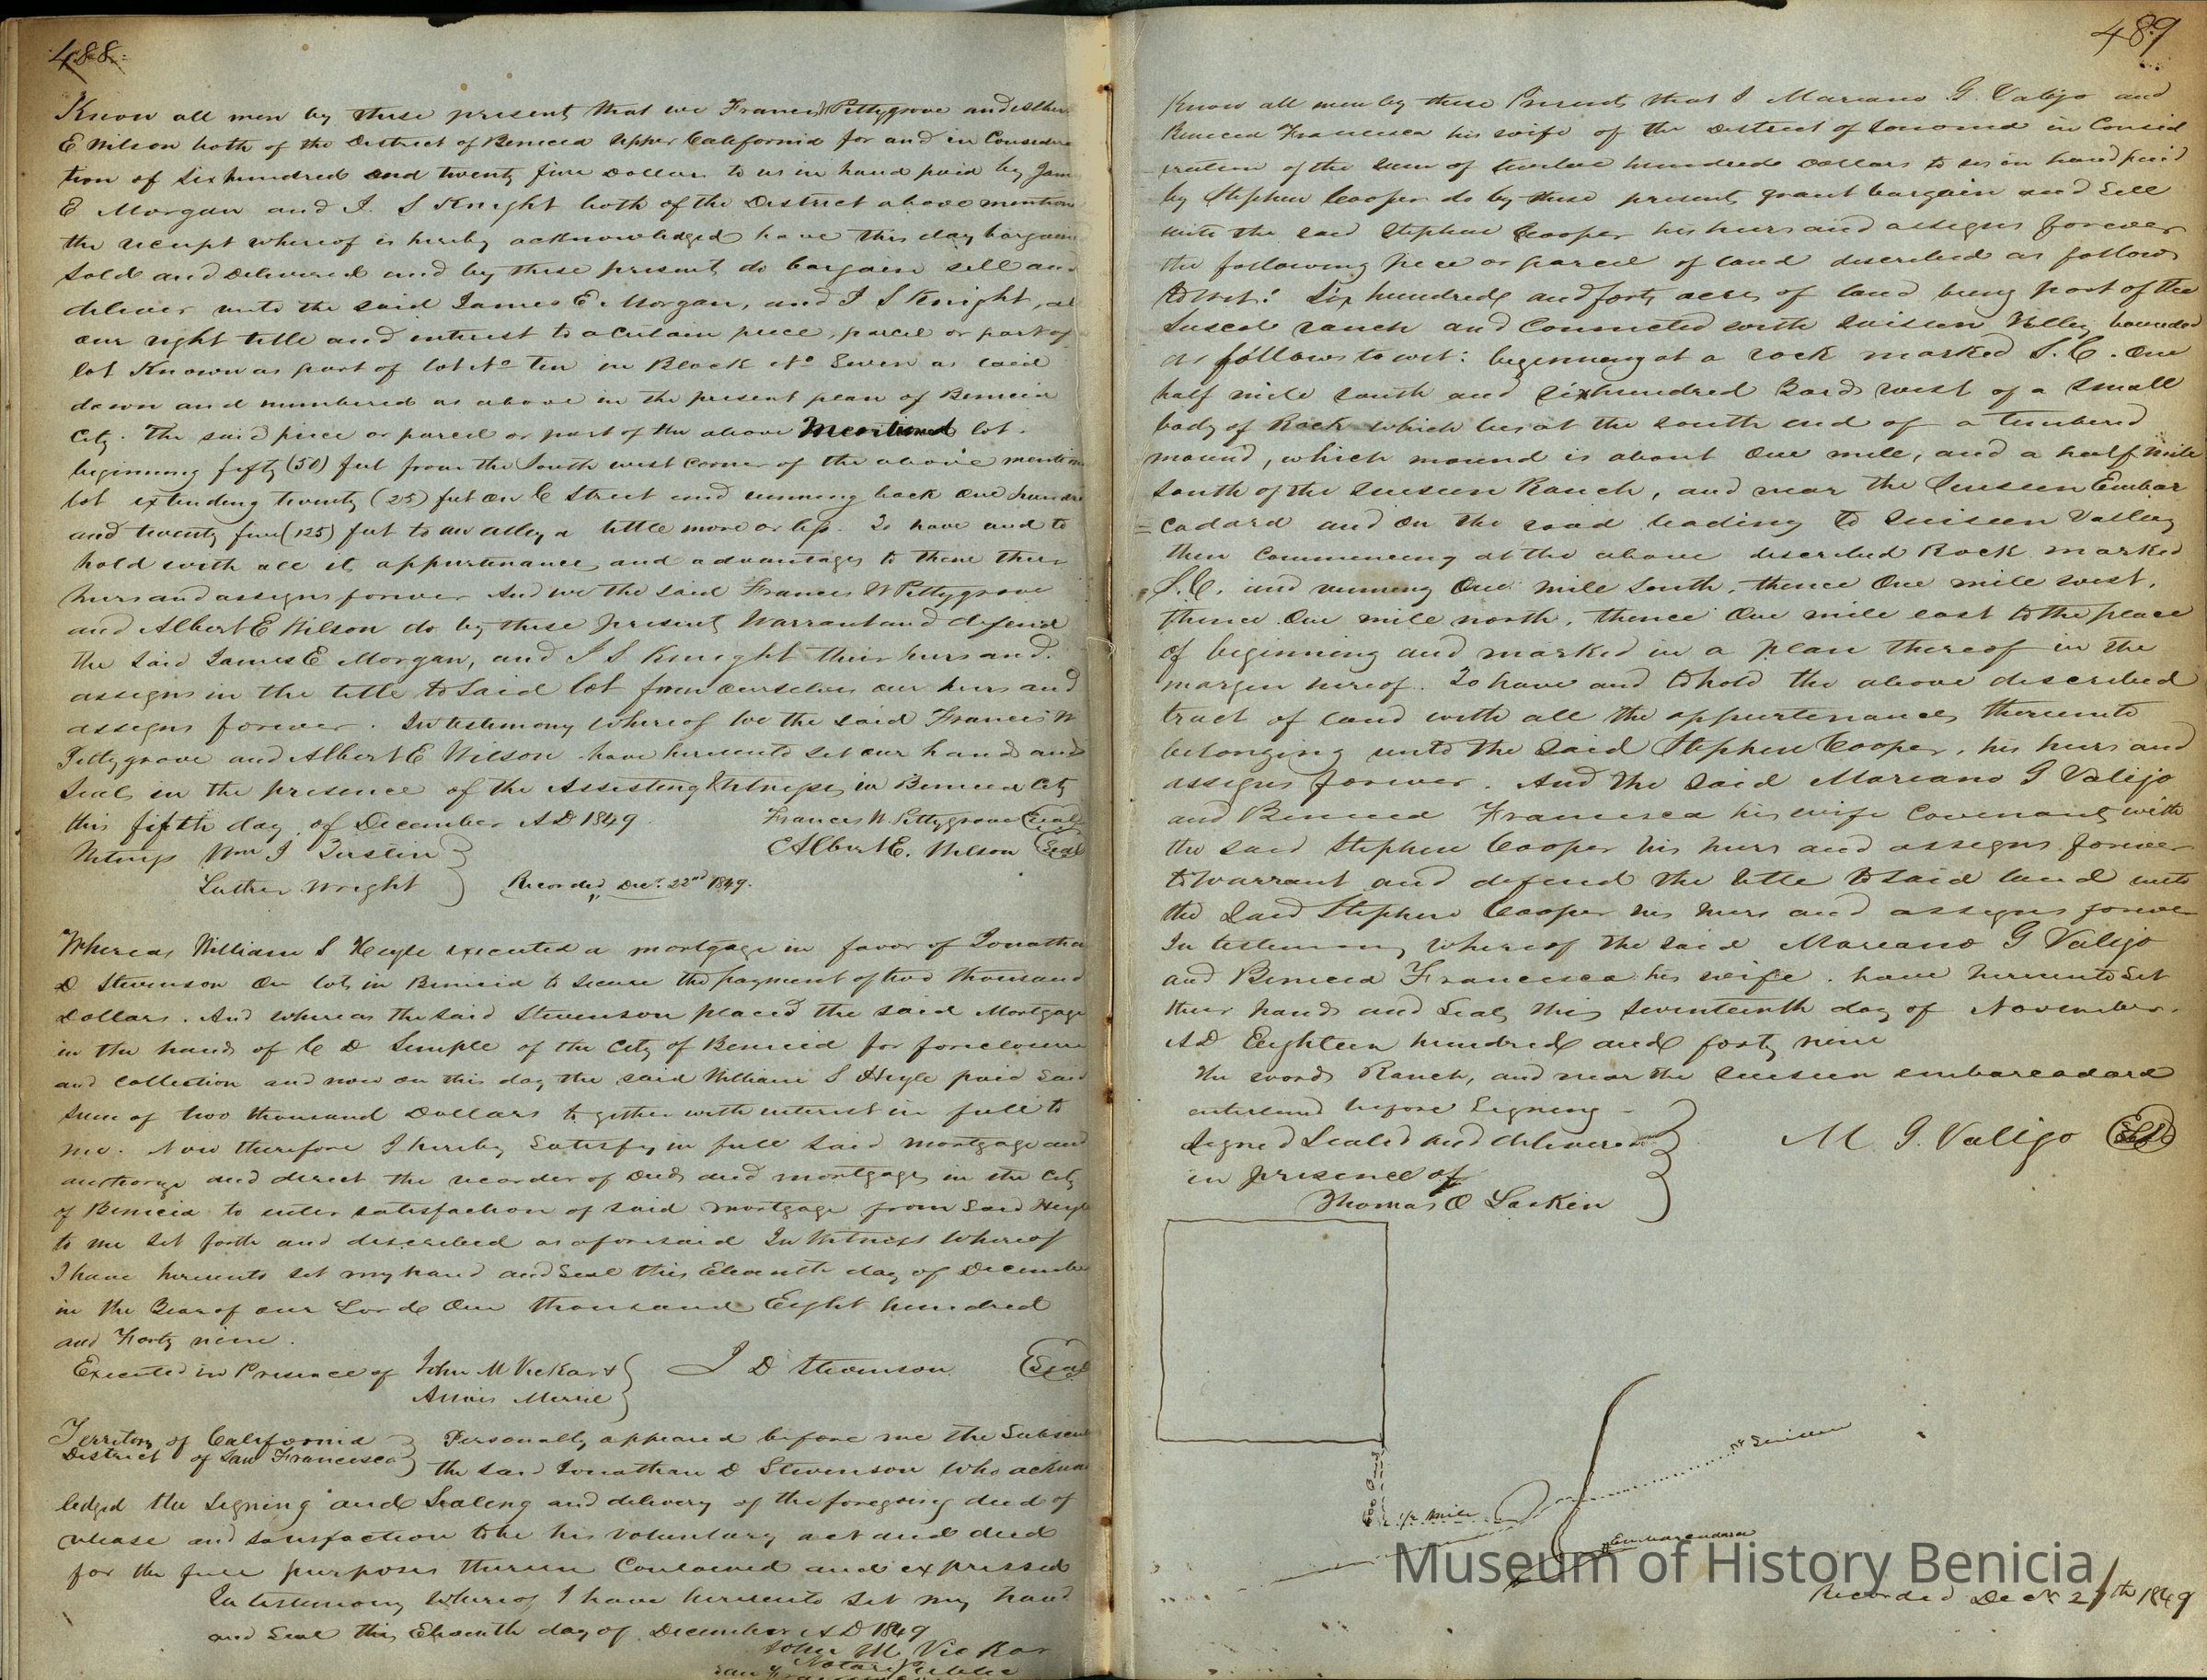 488
Know all men by these present that we Francis W Pettygrove and Alber
E Wilson both of the District of Benicia Upper California for and in Considera
tion of Six hundred and twenty five Dollars to us in hand paid by Jam
E Morgan and I. S Knight both of the District above mention
the receipt whereof is hereby acknowledged have this day bargain
Sold and Delivered and by these present do bargain sell an
deliver unto the said James E Morgan, and I S Knight, al
our right title and interest to a certain piece, parcel or part of
lot Known as part of lot No Ten in Block No Seven as laid
down and numbered as above in the present plan of Benicia
City. The said piece or parcel or part of the above Mentioned lot.
beginning fifty (50) feet from the South west corner of the above mention
lot extending twenty (25) feet on C Street and running back One hundre
and twenty five (125) feet to an alley a little more or less. To have and to
hold with all it appurtenances and advantages to them their
heirs and assigns forever And we the said Francis W Pettygrove
and Albert E Wilson do by these present Warrant and defend
the said James E Morgan, and I S Knight their heirs and
assigns in the title to said lot from ourselves our heirs and
assigns forever. In testimony whereof We the said Francis W
Pettygrove and Albert E Wilson have hereunto set our hands and
Seals in the presence of the Assisting Witnesses in Benicia City
this fifth day of December A D 1849. Francis W. Pettygrove Seal
Witness Wm I Tustin Albert E. Wilson Seal
Luther Wright Recorded, Decr. 22nd 1849.
Whereas William S Heyle executed a mortgage in favor of Jonatha
D Stevenson On lots in Benicia to secure the payment of two thousand
Dollars. And whereas the said Stevenson placed the said Mortgage
in the hands of C D Semple of the City of Benicia for foreclosure
and collection and now on this day the said William S Heyle paid said
Sum of two thousand Dollars together with interest in full to
me. Now therefore I hereby satisfy in full said mortgage and
authorize and direct the recorder of Deeds and mortgages in the City
of Benicia to enter satisfaction of said mortgage from said Heyle
to me set forth and described as aforesaid In Witness Whereof
I have hereunto set my hand and Seal this Eleventh day of Decembe
in the Year of our Lord One thousand Eight hundred
and Forty nine.
Executed in Presence of John M Vickar & I D Stevenson Seal
Annis Merril
Territory of California Personally appeared before me the Subscri
District of San Francisco the said Jonathan D Stevenson who acknow
ledged the Signing and Sealing and delivery of the foregoing deed of
release and satisfaction to be his voluntary act and deed
for the full purposes therein Contained and expressed
In testimony Whereof I have hereunto set my hand
and Seal this Eleventh day of December A D 1849
John M. Vickar
Notary Public
San Francisco
489
Know all men by these Presents that I Mariano G. Valejo and
Benicia Francisca his wife of the District of Sonoma in Consid
eration of the Sum of twelve hundred dollars to us in hand paid
by Stephen Cooper do by these present, grant bargain and Sell
unto the said Stephen Cooper his heirs and assigns forever
the following piece or parcel of land described as follows
to wit: Six hundred and forty acres of land being part of the
Suscol ranch and Connected with Suisun Valley bounded
as follows to wit: beginning at a rock marked S. C. One
half mile south and six hundred Yards west of a small
body of Rock which lies at the south end of a timbered
mound, which mound is about One mile, and a half mile
south of the Suisun Ranch, and near the Suisun Embar
=cadara and on the road leading to Suisun Valley
then Commencing at the above described Rock marked
S. C. and running One mile South, thence One mile west,
thence One mile north, thence One mile east to the place
of beginning and marked in a plan thereof in the
margin hereof. To have and to hold the above described
tract of land with all the appurtenances thereunto
belonging unto the said Stephen Cooper, his heirs and
assigns forever. And the said Mariano G Valejo
and Benicia Francisca his wife Covenant with
the said Stephen Cooper his heirs and assigns forever
to Warrant and defend the title to said land unto
the said Stephen Cooper his heirs and assigns forever
In testimony whereof the said Mariano G Valejo
and Benicia Francisca his wife. have hereunto set
their hands and Seals this Seventeenth day of November.
A D Eighteen hundred and forty nine
The words Ranch, and near the Suisun embarcadara
enterlined before Signing
Signed Sealed and delivered M G. Valejo Seal
in presence of
Thomas O Larkin
600 yds
1/2 mile
to Suisun
Embarcadara
Museum of History Benicia
Recorded Decr 27th 1849